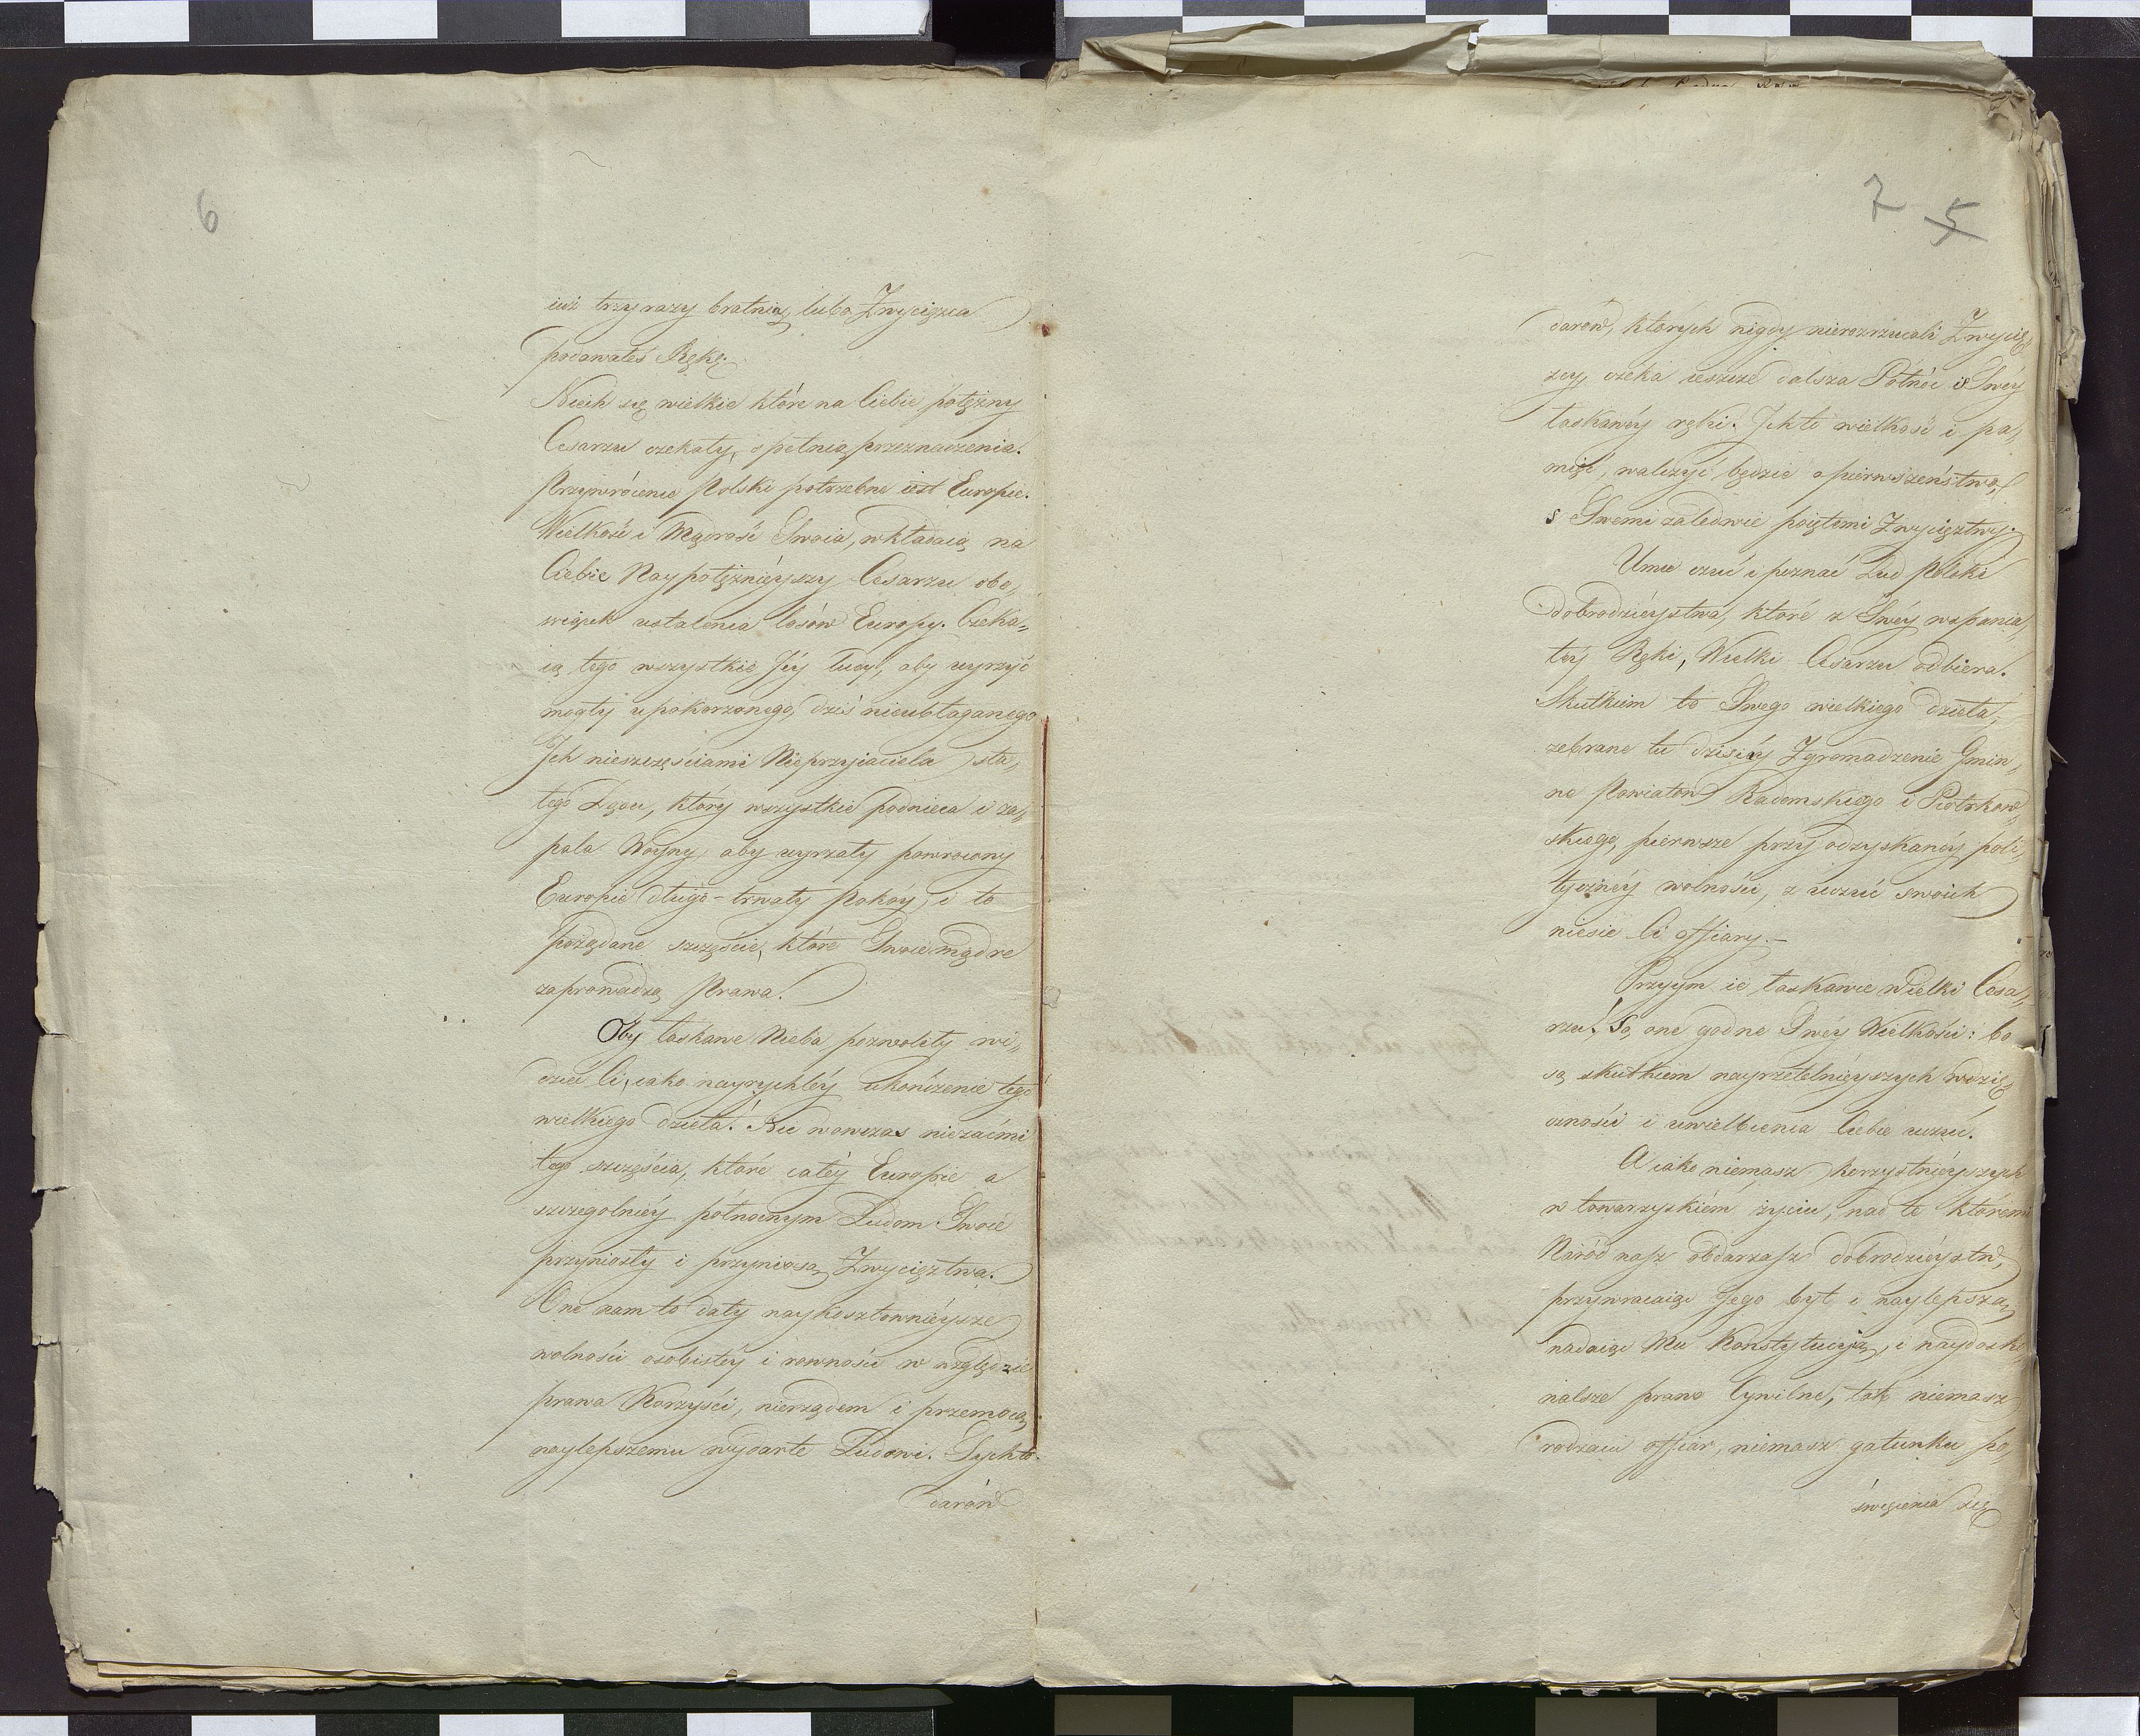 6
iuż trzy razy bratnią lubo Zwycięzca
podawałeś Rękę.
Niech się wielkie które na Ciebie potężny
Cesarzu czekały, spełnią przeznaczenia.
Przywrócenie Polski potrzebne iest Europie.
Wielkość i Mądrość Twoia, wkładaią na
Ciebie Naypotężnieyszy Cesarzu obo„
wiązek ustalenia losów Europy. Czeka„
ią tego wszystkie Jéy Ludy, aby uyrzyć
mogły upokorzonego, dziś nieubłaganego
Ich nieszczęściami Nieprzyjaciela sta„
łego Lądu, który wszystkie podnieca i za„
pala Woyny, aby uyrzały powrocony
Europie długo-trwały Pokóy, i to
pożądane szczęście, które Twoie mądre
zaprowadzą Prawa.
Oby łaskawe Nieba pozwoliły wi„
dzieć Ci, iako nayrychléy ukończenie tego
wielkiego dzieła! Nic wowczas niezaćmi
tego szczęścia, które całéy Europie a
szczegolniéy północnym Ludom Twoie
przyniosły i przyniosą Zwycięztwa.
One nam to dały naykosztownieysze
wolności osobistéy i rowności w względzie
prawa Korzyści, nierządem i przemocą
naylepszemu wydarte Ludowi. Tychto
darów
7 5
darów, których nigdy nierozrzucali Zwycięz
zcy, czeka ieszcze dalsza Północ z Twéy
łaskawéy ręki. Ich to wielkość i pa„
mięć, walczyć będzie o pierwszeństwo,
s Twemi zaledwie poiętemi Zwycięztwy.
Umie czuć i poznać Lud Polski
dobrodzieystwa, które z Twéy wspania„
łéy Ręki, Wielki Cesarzu odbiera.
Skutkiem to Twego wielkiego dzieła,
zebrane tu dzisiéy Zgromadzenie Gmin„
ne Powiatów Radomskiego i Piotrkow„
skiego, pierwsze przy odzyskanéy poli„
tycznéy wolności, z uczuć swoich
niesie Ci offiary.—
Przyym ie łaskawie Wielki Cesa„
rzu! Są one godne Twéy Wielkości: bo
są skutkiem nayrzetelnieyszych wdzię„
czności i uwielbienia Ciebie uczuć.
A iako niemasz korzystnieyszych
w towarzyskiém życiu, nad te któremi
Naród nasz obdarzasz dobrodzieystw,
przywracaiąc Jego byt i naylepszą
nadaiąc Mu Konstytucyią, i naydosko„
nalsze prawo Cywilne, tak niemasz
rodzaiu offiar, niemasz gatunku po„
święcenia się